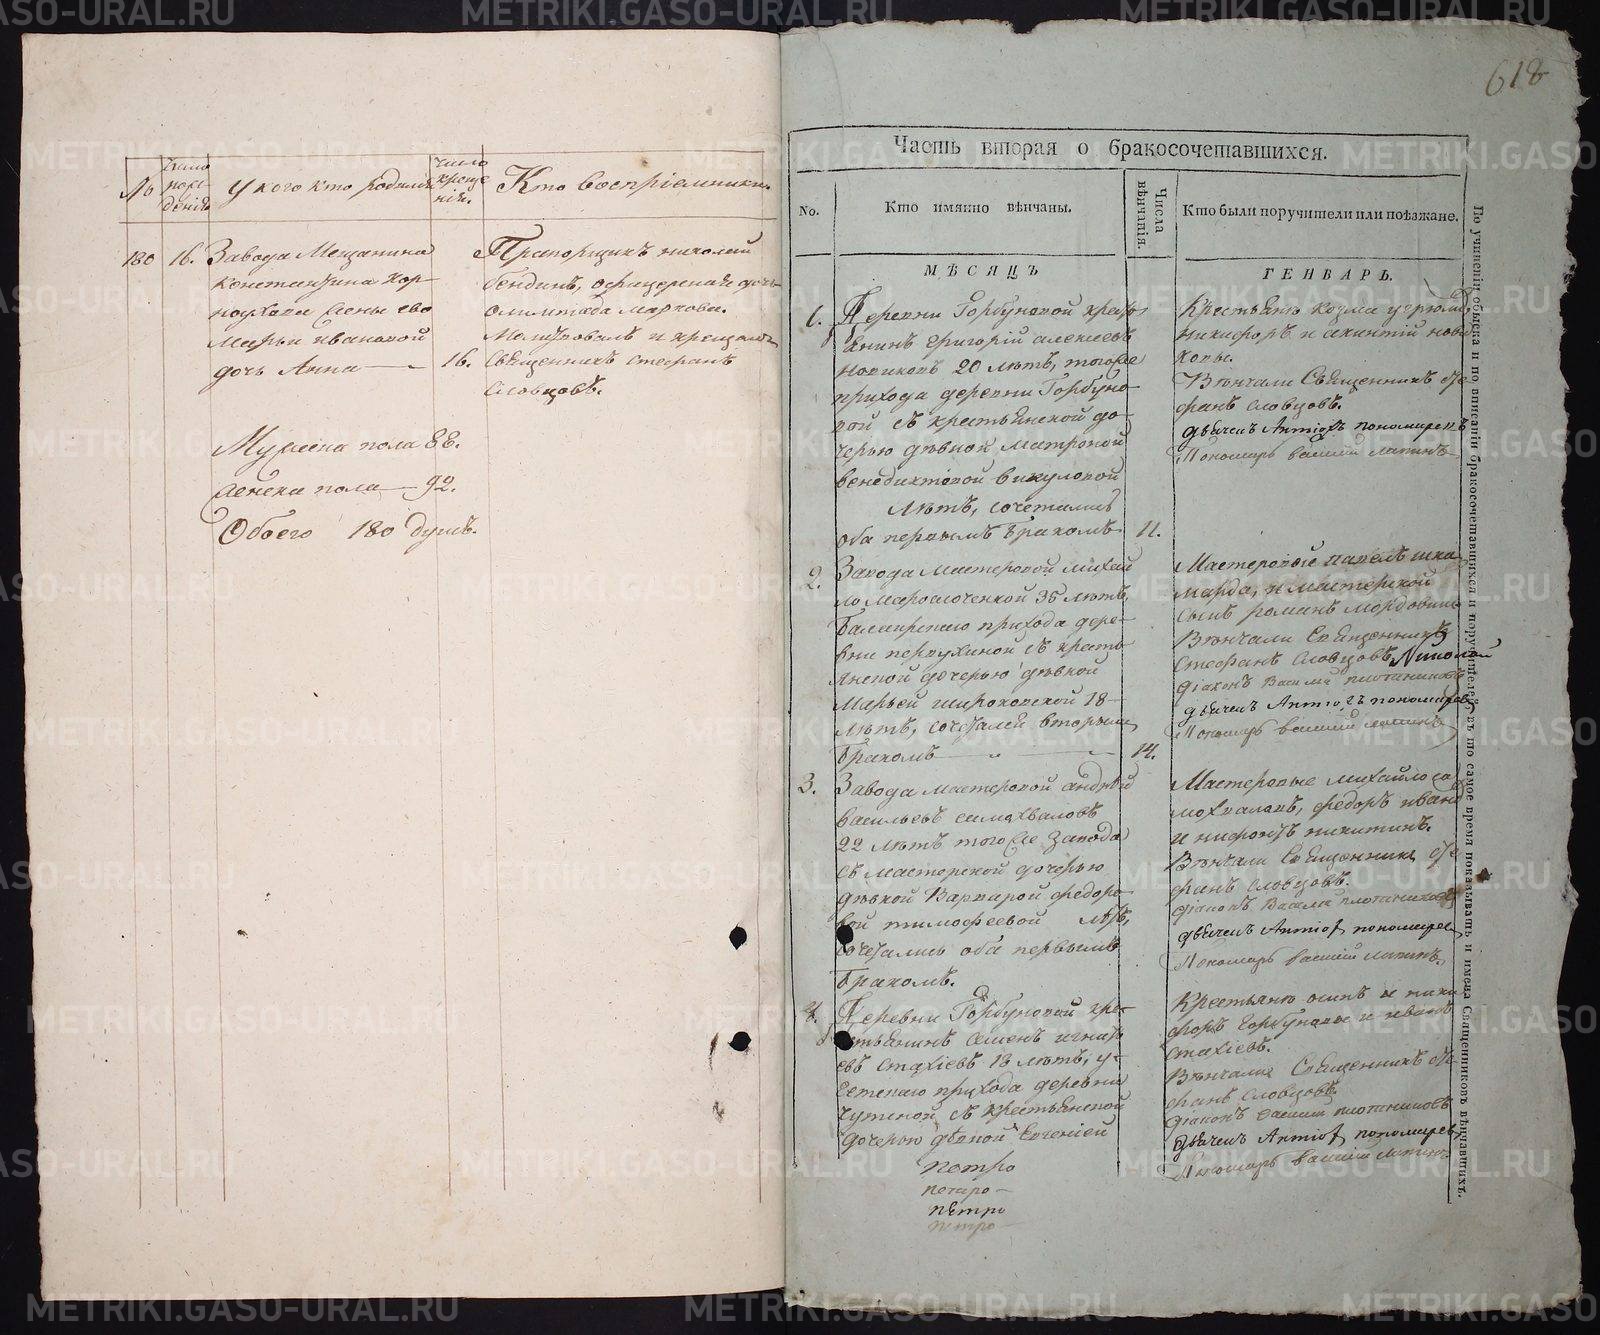 №
число рож-
денія
У кого кто родился
число
креще
нія.
Кто воспріемники.
180
16.
Завода Мещанина
Константина Кор-
ноухова жены ево
Марьи ивановой
дочь Анна
16.
Прапорщикъ николай
бендинъ, офицерская дочь
олимпіада Маркова.
Молитвовалъ и крещалъ
священникъ стефанъ
словцовъ.
Мужеска пола 88.
женска пола 92.
Обоего 180 душъ.
618
Часть вторая о бракосочетавшихся.
No.
Кто имянно вѣнчаны.
Числа
вѣнчанія.
Кто были поручители или поѣзжане.
МѢСЯЦЪ
ГЕНВАРЬ.
1.
Деревни Горбуновой крест
янинъ григорій алексеевъ
новиковъ 20 лѣтъ, тогоже
прихода деревни Горбуно-
вой съ крестьянской до-
черью дѣвкой матроной
венедиктовой викуловой
лѣтъ, сочетались
оба первымъ бракомъ
11.
Крестьяне козма
никифоръ и
Вѣнчали Священникъ сте-
фанъ словцовъ.
дьячекъ Антіохъ пономаревъ
Пономарь василій лапинъ
2.
Завода мастеровой михай
ло 35 лѣтъ,
прихода дере-
вни первухиной съ кресть
янской дочерью дѣвкой
Марьей широковской 18
лѣтъ, сочетались вторымъ
бракомъ
14.
Мастеровые павелъ
и мастерской
сынъ романъ мордовинъ
Вѣнчали Священникъ
стефанъ словцовъ Николай
діаконъ Василій плотниковъ
дьячекъ Антіохъ пономаревъ
Пономарь василій лапинъ
3.
Завода мастеровой андрей
васильевъ самохваловъ
22 лѣтъ того же завода
съ мастерской дочерью
дѣвкой Варварой федоро-
вой тимофеевой лѣтъ,
сочетались оба первымъ
бракомъ.
Мастеровые михайло са
мохваловъ, федоръ иванъ
и никитинъ.
Вѣнчали Священникъ сте
фанъ словцовъ.
діаконъ Василій плотниковъ
дьячекъ Антіохъ пономарев
Пономарь василій лапинъ.
4.
Деревни Горбуновой кре-
стьянинъ семенъ игнать
евъ стахіевъ 18 лѣтъ, у-
сетскаго прихода деревни
съ крестьянской
дочерью дѣвкой Евгеніей
петро
петро
петро
петро
Крестьяне осипъ и ники
форъ горбуновы и иванъ
стахіевъ.
Вѣнчали Священникъ сте
фанъ словцовъ.
діаконъ василій плотниковъ
дьячекъ Антіохъ пономаревъ
Пономарь василій лапинъ
По учиненіи обыска и по вписаніи бракосочетавшихся и поручителей въ то самое время показывать и имена Священниковъ вѣнчавшихъ.